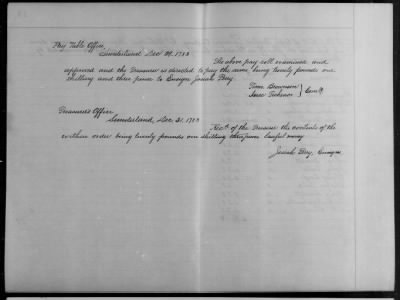 Pay Table Office,
Sunderland, Dec 29, 1783
The above pay roll examined and
approved and the Treasurer is directed to pay the same, being twenty pounds one
shilling and three pence to Ensign Josiah
Timo. Brownson
Isaac Tichenor } Com.
Treasurer's Office,
Sunderland, Dec. 31, 1783
Rec'd of the Treasurer the contents of the
within order being twenty pounds one shilling three pence lawful money
Josiah Ensign